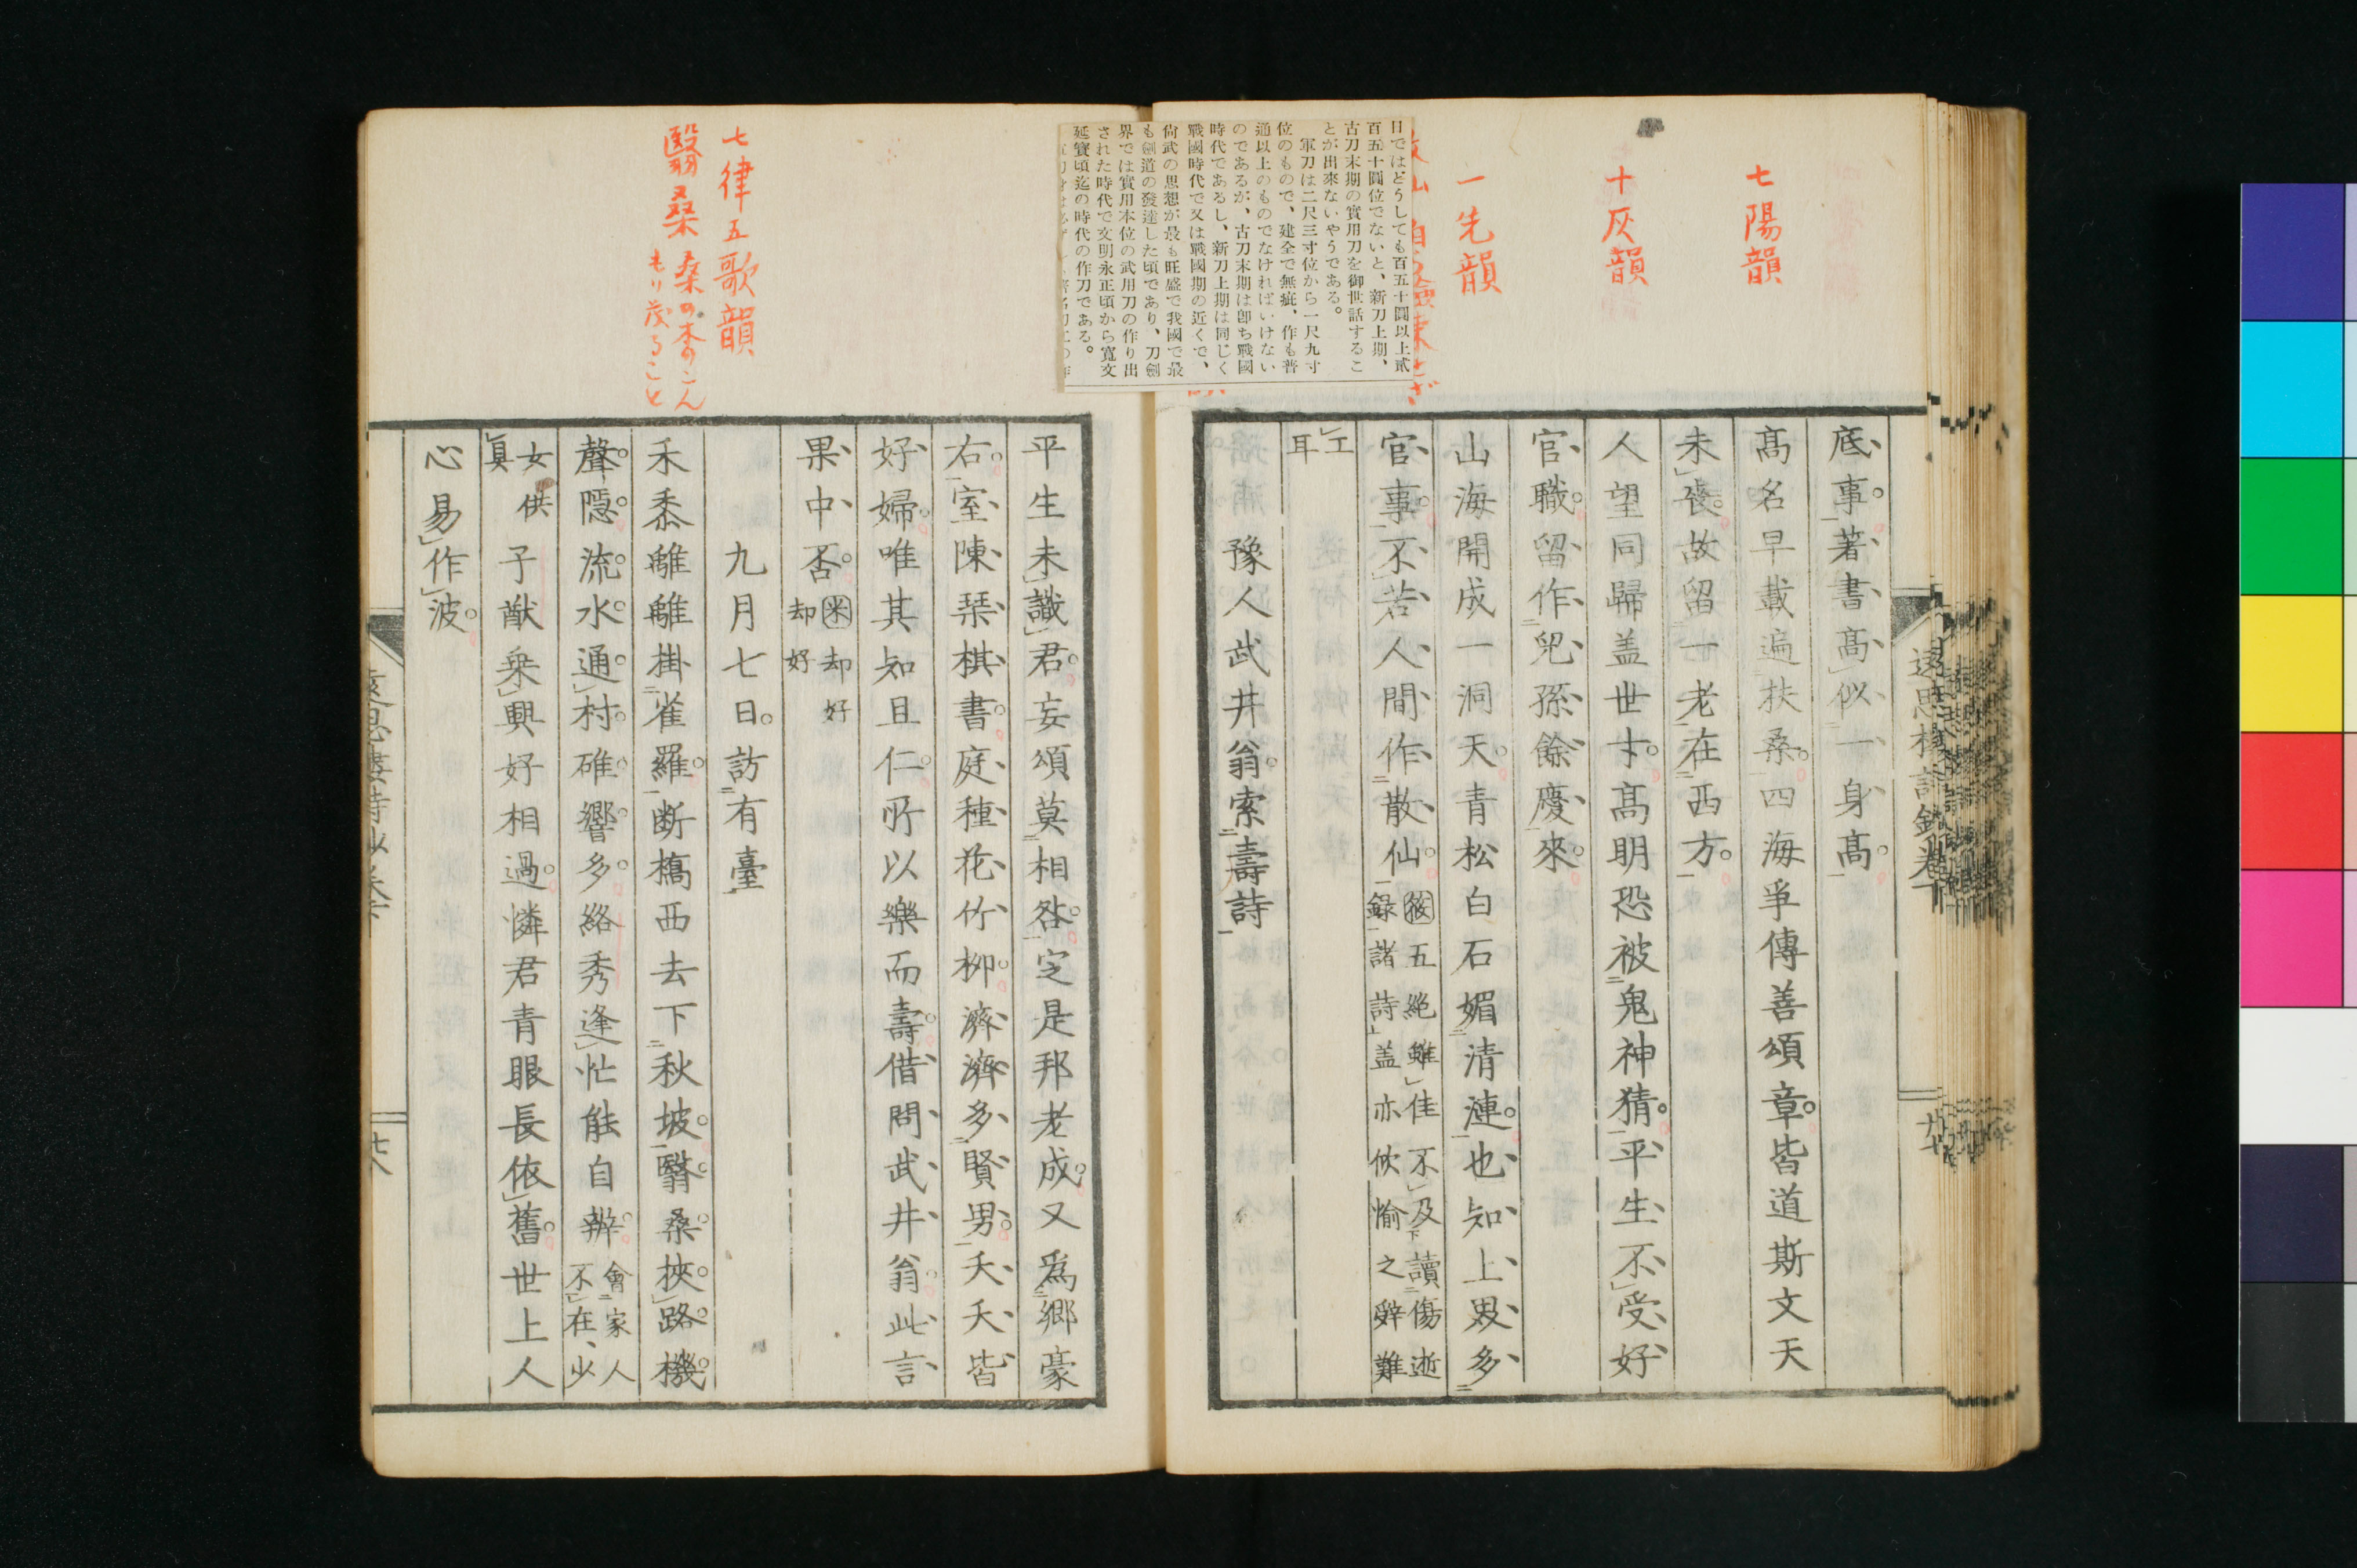 七陽韻
十灰韻
一先韻
日ではどうしても百五十圓以上貳
百五十圓位でないと、新刀上期、
古刀末期の實用刀を御世話するこ
とが出來ないやうである。
軍刀は二尺三寸位から一尺九寸
位のもので、建全で無疵、作も普
通以上のものでなければいけない
のであるが、古刀末期は卽ち戰國
時代であるし、新刀上期は同じく
戰國時代で又は戰國期の近くで、
尙武の思想が最も旺盛で我國で最
も劍道の發達した頃であり、刀劍
界では實用本位の武用刀の作り出
された時代で文明永正頃から寬文
延寶頃迄の時代の作刀である。
底事著書高似一身高
高名早載遍扶桑四海爭傳善頌章皆道斯文天
未喪故留一老在西方
人望同歸盖世才高明恐被鬼神猜平生不受好
官職留作兒孫餘慶來
山海開成一洞天青松白石媚清漣也知上界多
官事不若人間作散仙
筱五絶雖佳不及下讀傷逝
錄諸詩盖亦攸愉之辭難
工
耳
豫人武井翁索壽詩
遠思樓詩鈔卷下
廿七
七律五歌韻
翳桑 桑の木のこん
もり茂ること
平生未識君妄頌莫相咎定是邦老成又爲鄉豪
右室陳琹棋書庭種花竹柳濟濟多賢男夭夭皆
好婦唯其知且仁所以樂而壽借問武井翁此言
果中否
米却好
却好
九月七日訪有臺
禾黍離離掛雀羅断橋西去下秋坡翳桑挾路機
聲隱流水通村碓響多絡秀逢忙能自辨
會家人
不在、少
女供
真
子猷乘興好相過憐君青眼長依舊世上人
心易作波
遠思樓詩鈔卷下
廿八